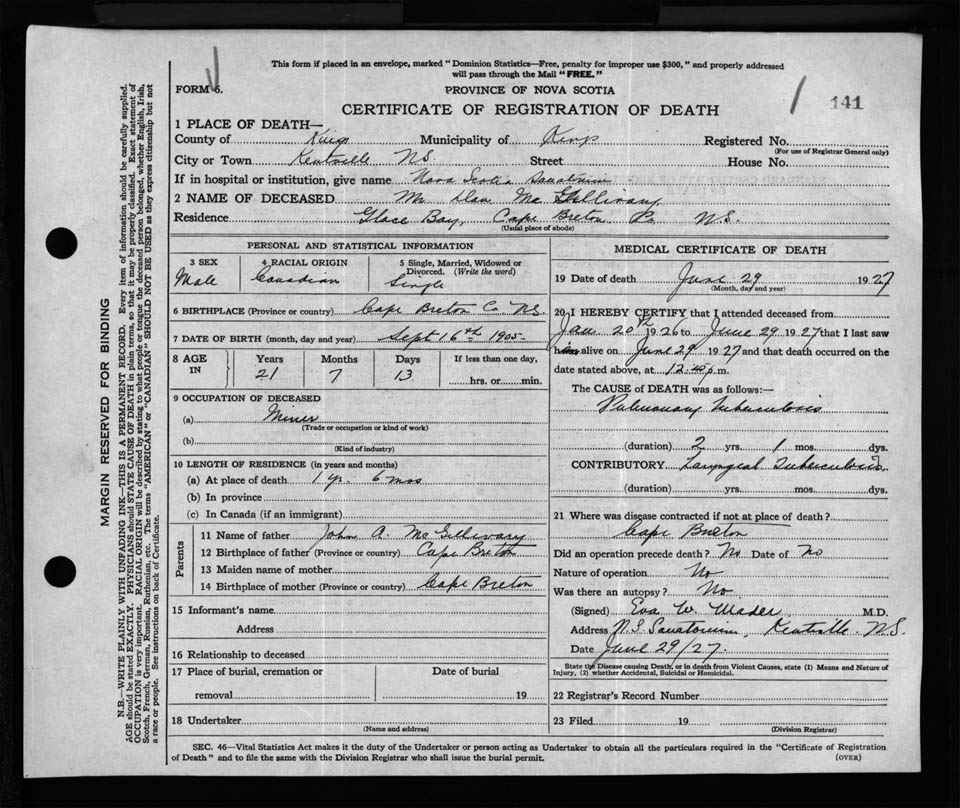 This form if placed in an envelope, marked "Dominion Statistics—Free, penalty for improper use $300," and properly addressed
will pass through the Mail "FREE."
FORM 6.
PROVINCE OF NOVA SCOTIA
CERTIFICATE OF REGISTRATION OF DEATH
141
1 PLACE OF DEATH—
County of Kings Municipality of Kings Registered No.
(For use of Registrar General only)
City or Town Kentville N.S. Street House No.
If in hospital or institution, give name Nova Scotia Sanatorium
2 NAME OF DECEASED Mr Dan Mc Gillivary
Residence Glace Bay, Cape Breton Co. N.S.
(Usual place of abode)
PERSONAL AND STATISTICAL INFORMATION
3 SEX
Male
4 RACIAL ORIGIN
Canadian
5 Single, Married, Widowed or
Divorced. (Write the word)
Single
6 BIRTHPLACE (Province or country) Cape Breton Co N.S.
7 DATE OF BIRTH (month, day and year) Sept 16th 1905
8 AGE
IN
Years
21
Months
7
Days
13
If less than one day,
hrs. or min.
9 OCCUPATION OF DECEASED
(a) Miner
(Trade or occupation or kind of work)
(b)
(Kind of industry)
10 LENGTH OF RESIDENCE (in years and months)
(a) At place of death 1 yr. 6 mos
(b) In province
(c) In Canada (if an immigrant)
Parents
11 Name of father John A. McGillivary
12 Birthplace of father (Province or country) Cape Breton
13 Maiden name of mother
14 Birthplace of mother (Province or country) Cape Breton
15 Informant's name
Address
16 Relationship to deceased
17 Place of burial, cremation or
removal
Date of burial
19
18 Undertaker
(Name and address)
MEDICAL CERTIFICATE OF DEATH
19 Date of death June 29 1927
(Month, day and year)
20 I HEREBY CERTIFY that I attended deceased from
Jan 20th 1926 to June 29 1927 that I last saw
him alive on June 29 1927 and that death occurred on the
date stated above, at 12.45 p.m.
The CAUSE of DEATH was as follows:—
Pulmonary Tuberculosis
(duration) 2 yrs. 1 mos. dys.
CONTRIBUTORY Laryngeal Tuberculosis
(duration) yrs. mos. dys.
21 Where was disease contracted if not at place of death?
Cape Breton
Did an operation precede death? No Date of No
Nature of operation No
Was there an autopsy? No
(Signed) Eva W. Mader M.D.
Address N.S. Sanatorium, Kentville N.S.
Date June 29/27.
State the Disease causing Death, or in death from Violent Causes, state (1) Means and Nature of
Injury, (2) whether Accidental, Suicidal or Homicidal.
22 Registrar's Record Number
23 Filed 19
(Division Registrar)
SEC. 46—Vital Statistics Act makes it the duty of the Undertaker or person acting as Undertaker to obtain all the particulars required in the "Certificate of Registration
of Death" and to file the same with the Division Registrar who shall issue the burial permit.
(OVER)
MARGIN RESERVED FOR BINDING
N.B.—WRITE PLAINLY WITH UNFADING INK—THIS IS A PERMANENT RECORD. Every item of information should be carefully supplied.
AGE should be stated EXACTLY. PHYSICIANS should STATE CAUSE OF DEATH in plain terms, so that it may be properly classified. Exact statement of
OCCUPATION is very important. RACIAL ORIGIN will be described by stating to what people or tongue the deceased person belonged, whether English, Irish,
Scotch, French, German, Russian, Ruthenian, etc. The terms "AMERICAN" or "CANADIAN" SHOULD NOT BE USED as they express citizenship but not
a race or people. See instructions on back of Certificate.